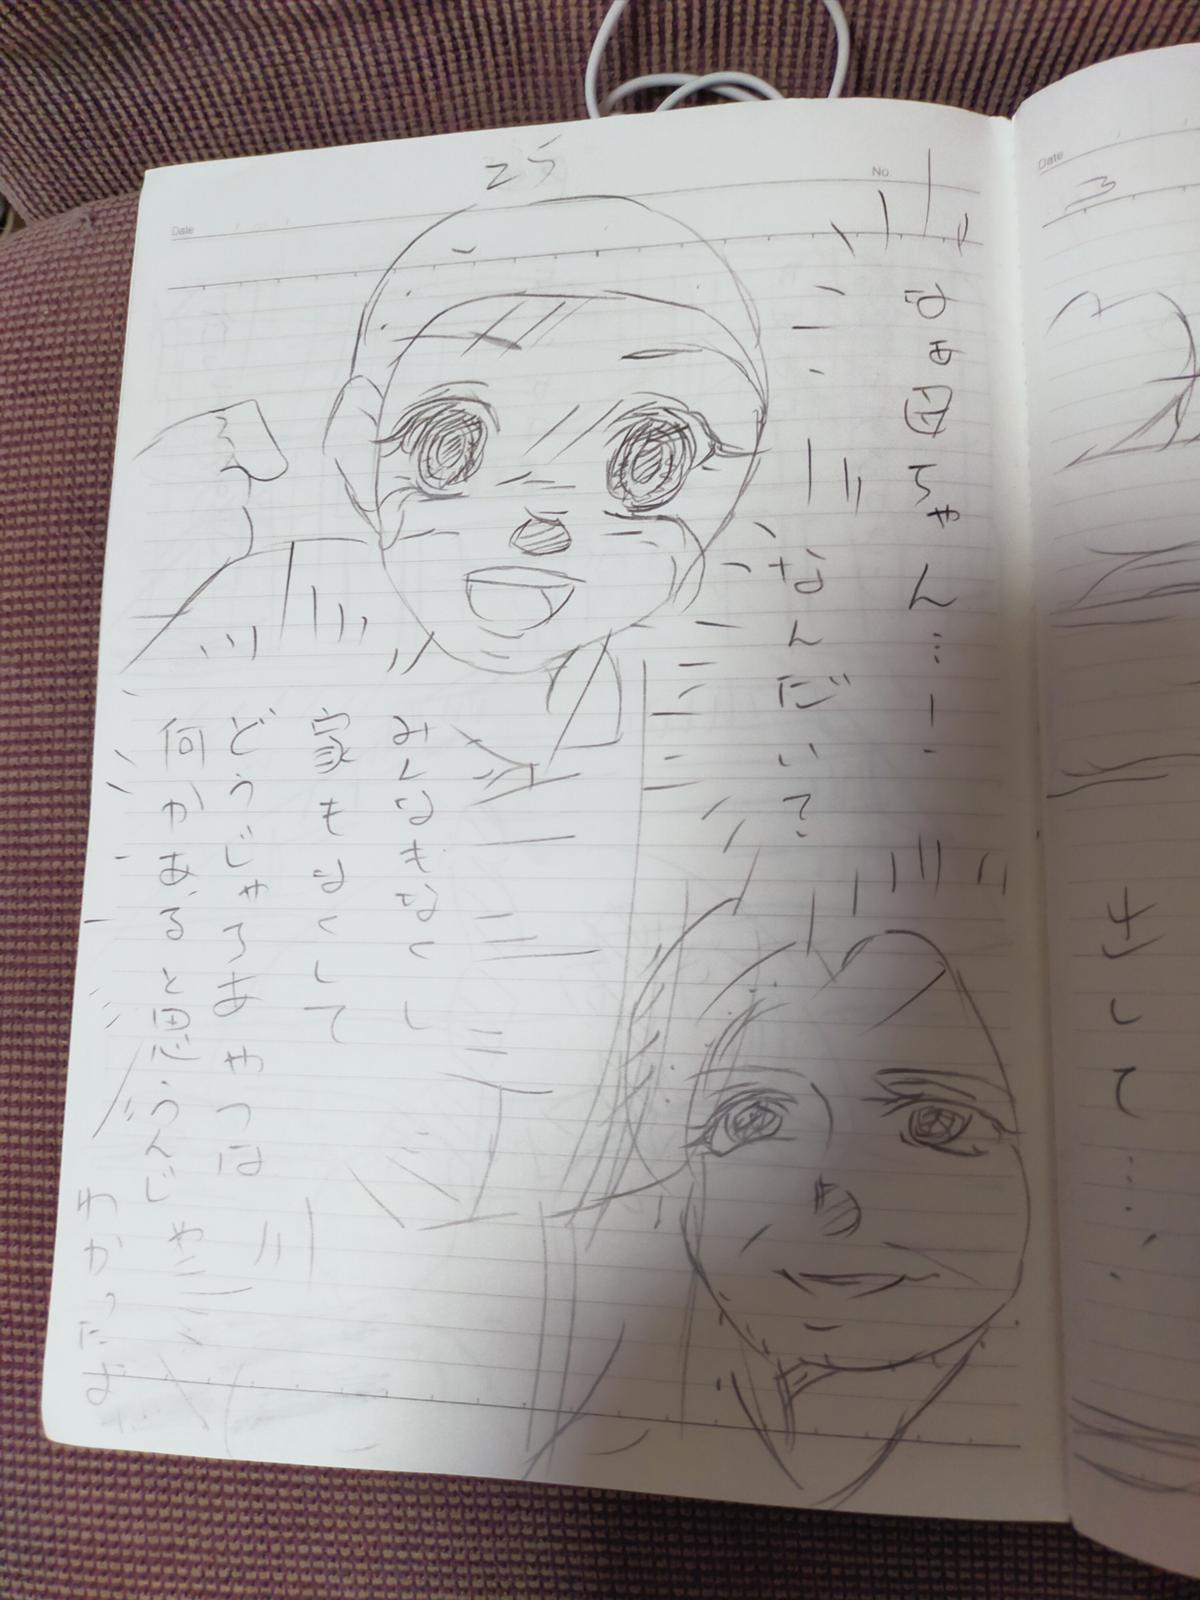 25
No.
Date
なぁ母ちゃん…!
なんだい?
みんなもなくし
家もなくして
どうじゃろあやつは
何かあると思うんじゃ
わかったよ
Date
3
さして…